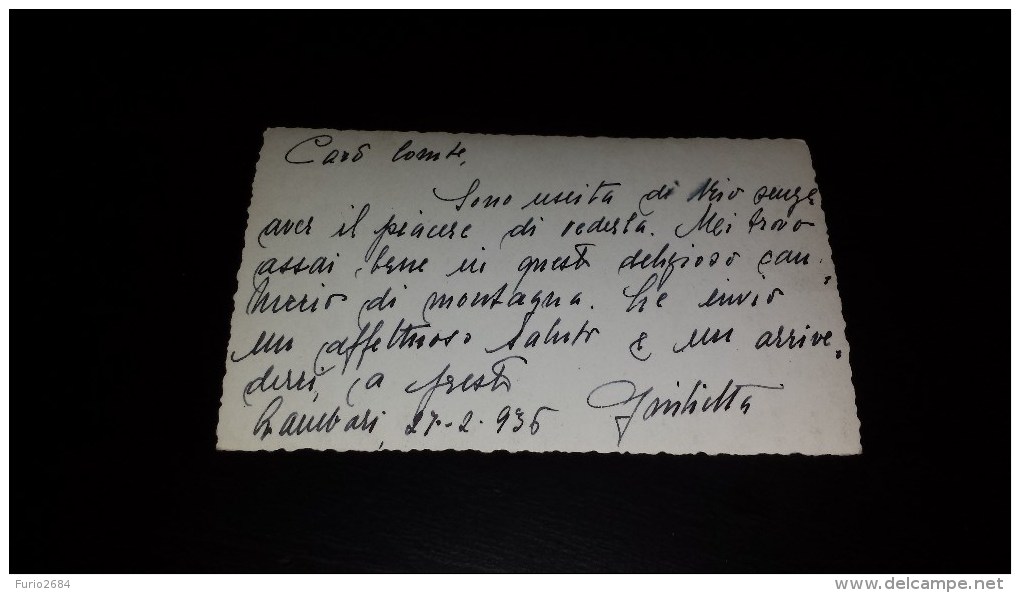 Caro Conte,
Sono uscita di senza
aver il piacere di vederla. Mi trovo
assai bene in questo delizioso can-
di montagna. Le invio
un affettuoso saluto e un arrive-
derci, a presto
27-2-936 Giulietta
Furio2684
www.delcampe.net